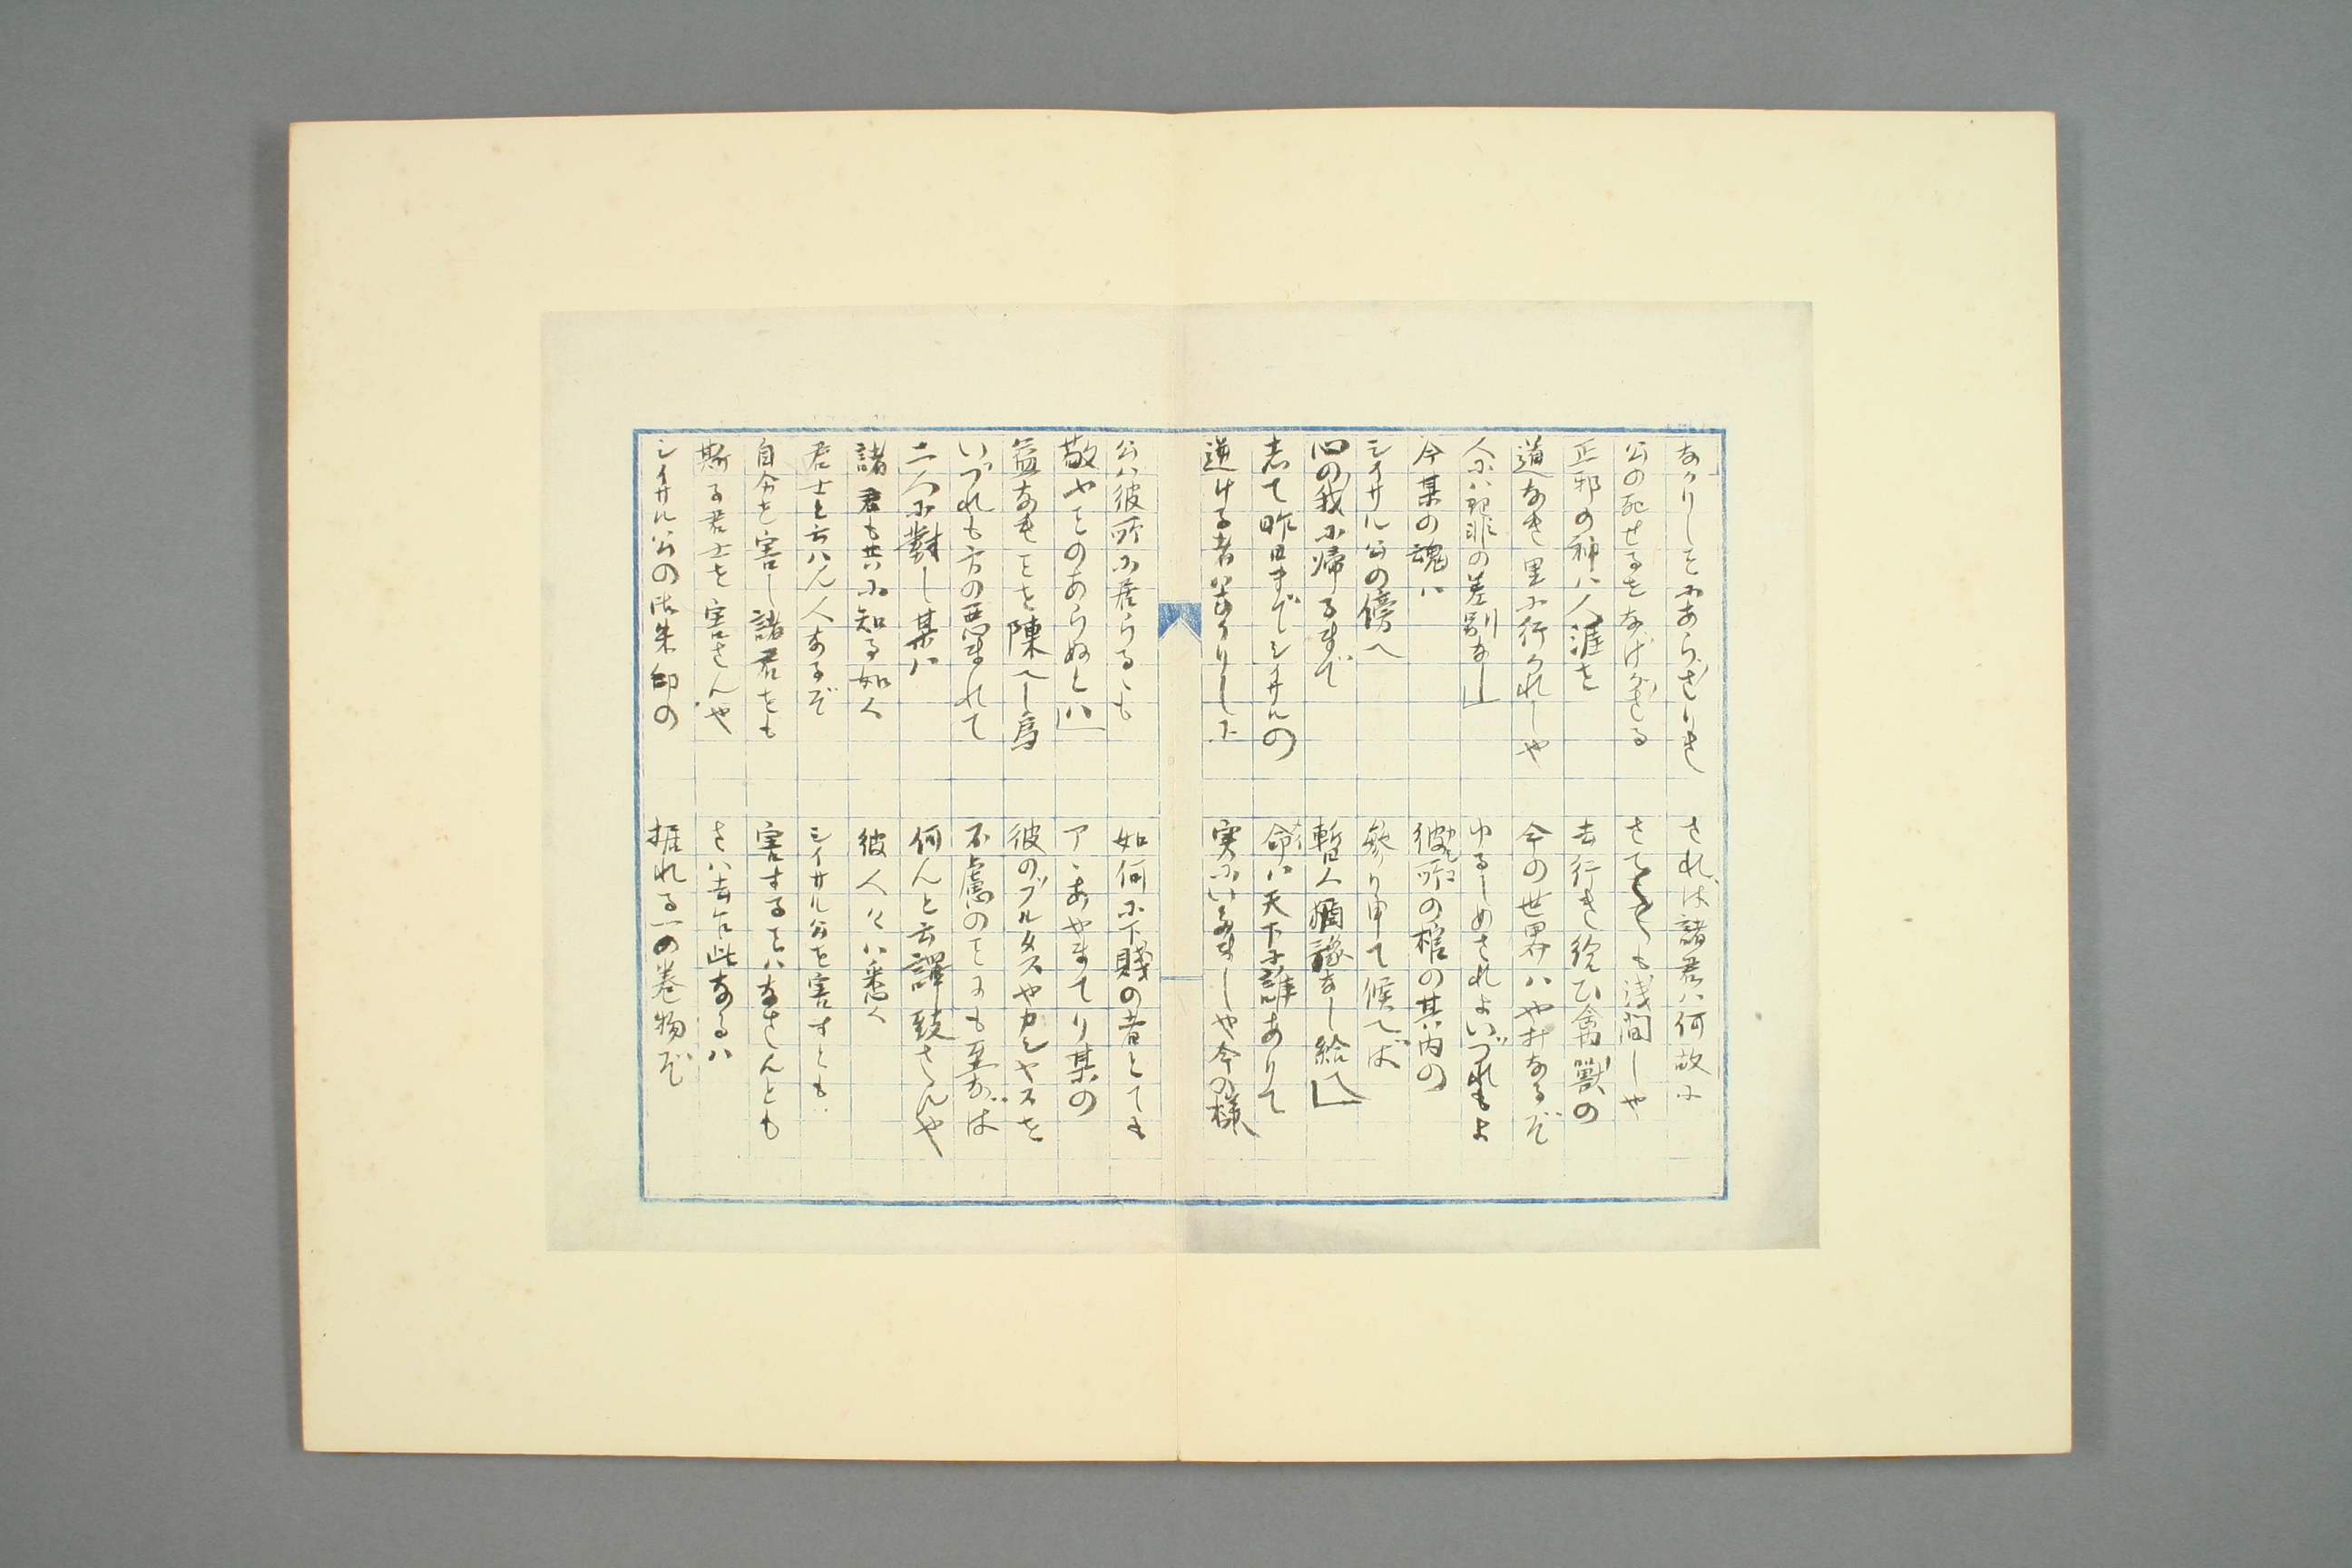 なかりしことにあらざりき　されば諸君ハ何故に
公の死せるをなげかざる　さても〱も浅間しや
正邪の神ハ人涯を　去行き給ひ禽獣の
道なき里に行かれしや　今の世界ハやみなるぞ
人にハ理非の差別なし」　ゆるしめされよいづれもよ
今某の魂ハ　彼所の棺の其内の
シイサル公の傍へ　参り申て候へば
心の我に帰るまで　暫く猶豫なし給へ」
志て昨日までシイサルの　命ハ天下に誰ありて
逆ける者ハなかりしに　実にいたましや今の様
公ハ彼所に居らるゝも　如何に下賤の者とても
敬ふことのあらぬとハ」　アヽあやまてり某の
益なきことを陳べし為　彼のブルタスやカシヤスを
いづれも方の悪まれて　不慮のことにも至りなば
二人に對し某ハ　何んと言譯致さんや
諸君も共に知る如く　彼人々ハ悉く
君士と云ハん人なるぞ　シイサル公を害すとも
自分を害し諸君をも　害することハなさんとも
斯る君士を害さんや　さハ去乍此なるハ
シイサル公の御朱印の　据れる一の巻物ぞ